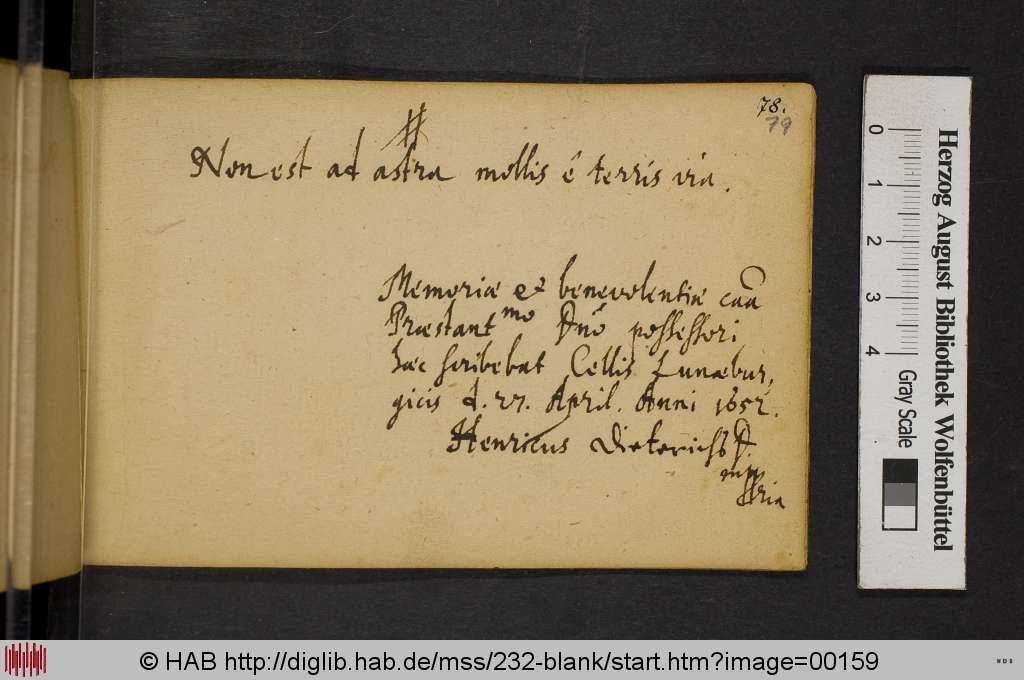 78.
79
Non est ad astra mollis è terris via.
Memoriæ et benevolentiæ caã
Præstant^mo Dnõ possessori
hæc scribebat Cellis Lunæbur,
gicis d. 27. April. Anni 1652.
Henricus Dieterichs D.
mpp
ria
Herzog August Bibliothek Wolfenbüttel
0 1 2 3 4
Gray Scale
© HAB http://diglib.hab.de/mss/232-blank/start.htm?image=00159